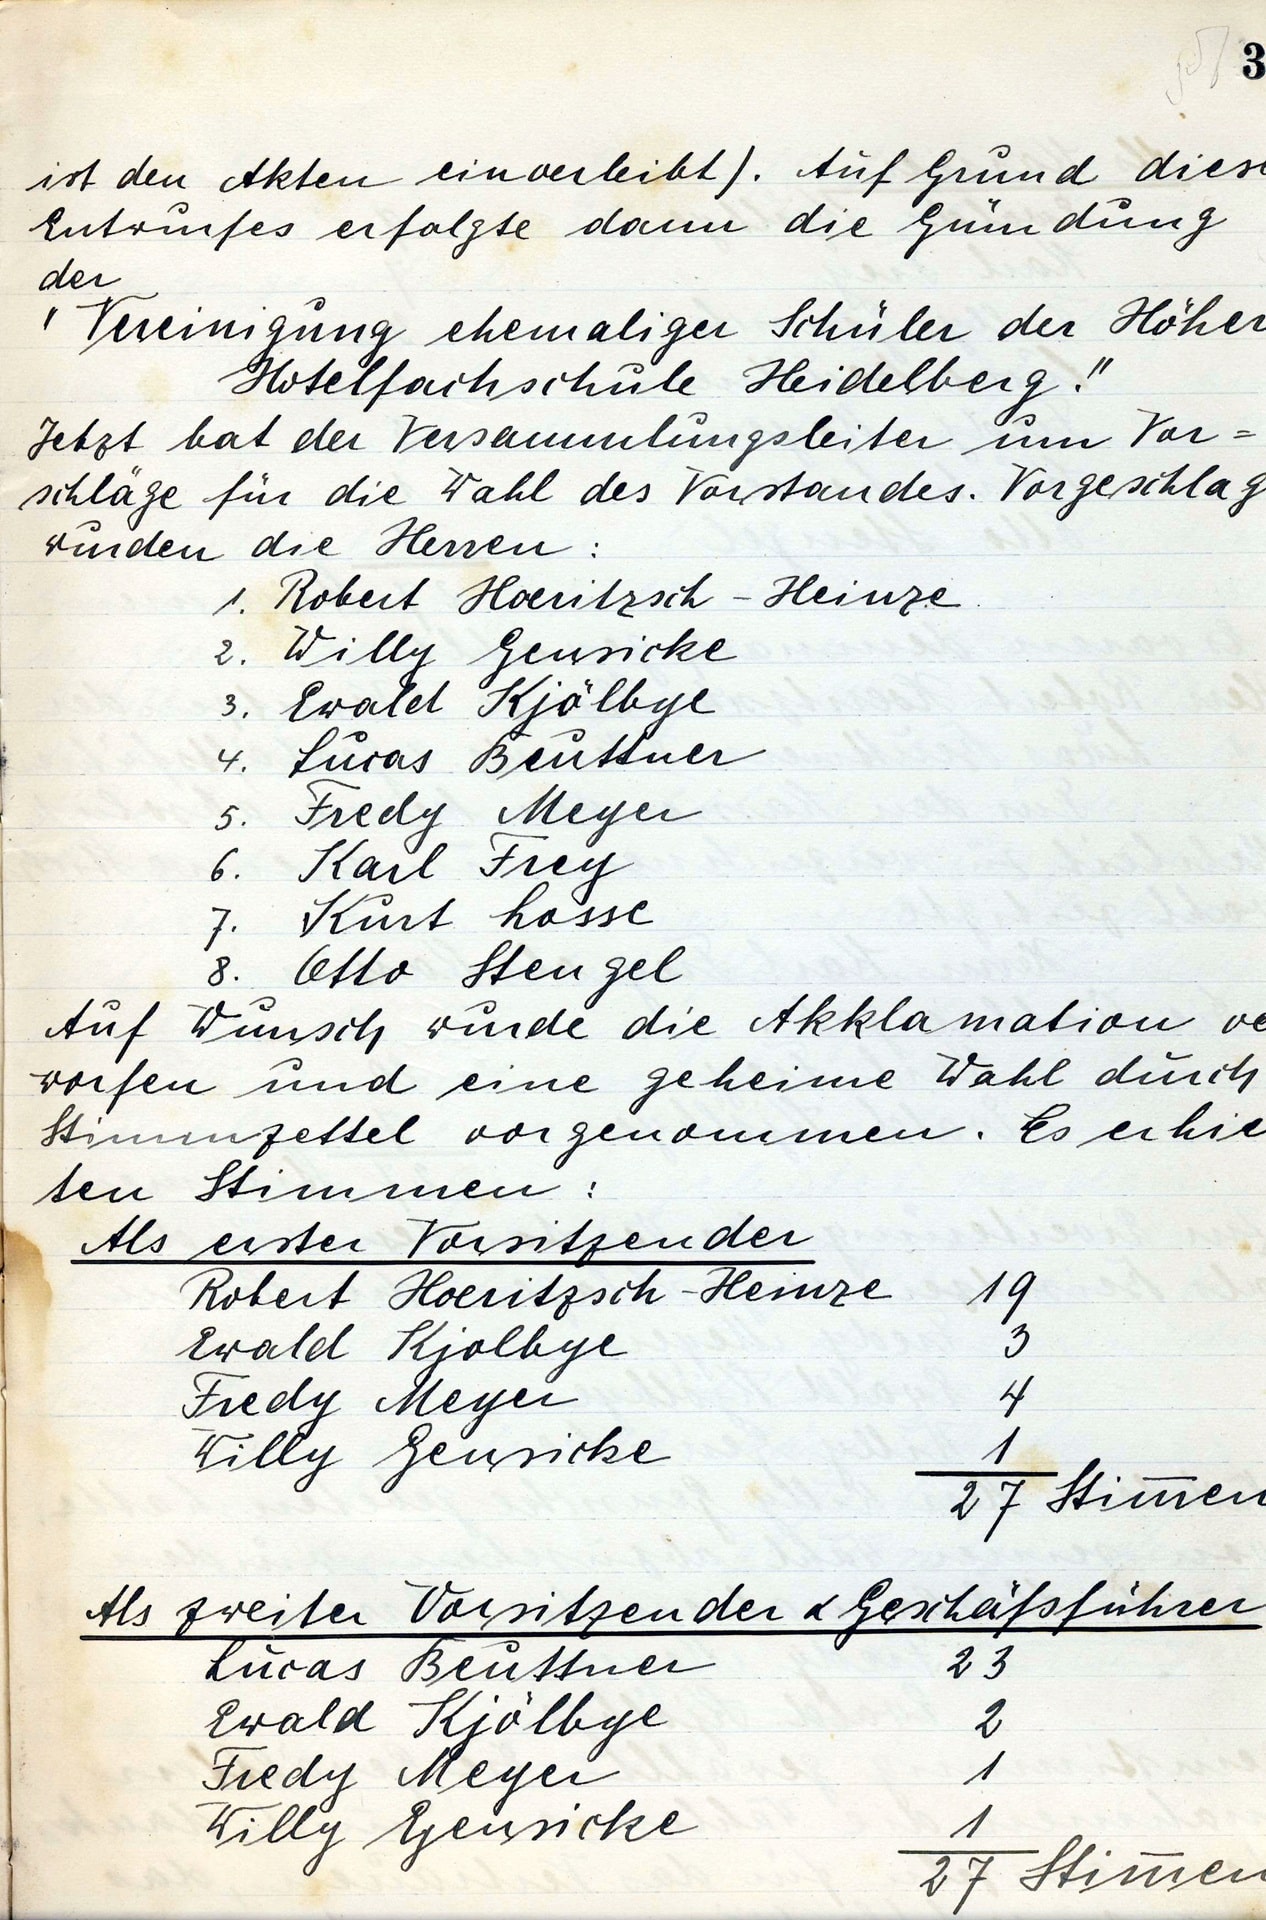 3
ist den Akten einverleibt). Auf Grund diese
Entwurfes erfolgte dann die Gründung
der
"Vereinigung ehemaliger Schüler der Höher
Hotelfachschule Heidelberg."
Jetzt bat der Versammlungsleiter um Vor=
schläge für die Wahl des Vorstandes. Vorgeschlag
wurden die Herren:
1. Robert Hoeritzsch-Heinze
2. Willy Gensicke
3. Ewald Kjölbye
4. Lucas Beuttner
5. Fredy Meyer
6. Karl Frey
7. Kurt Losse
8. Otto Stengel
Auf Wunsch wurde die Akklamation ve
worfen und eine geheime Wahl durch
Stimmzettel vorgenommen. Es erhie
ten Stimmen:
Als erster Vorsitzender
Robert Hoeritzsch-Heinze 19
Ewald Kjolbye 3
Fredy Meyer 4
Willy Gensicke 1
27 Stim̅en
Als zweiter Vorsitzender & Geschäfsführer
Lucas Beuttner 23
Ewald Kjölbye 2
Fredy Meyer 1
Willy Gensicke 1
27 Stim̅en